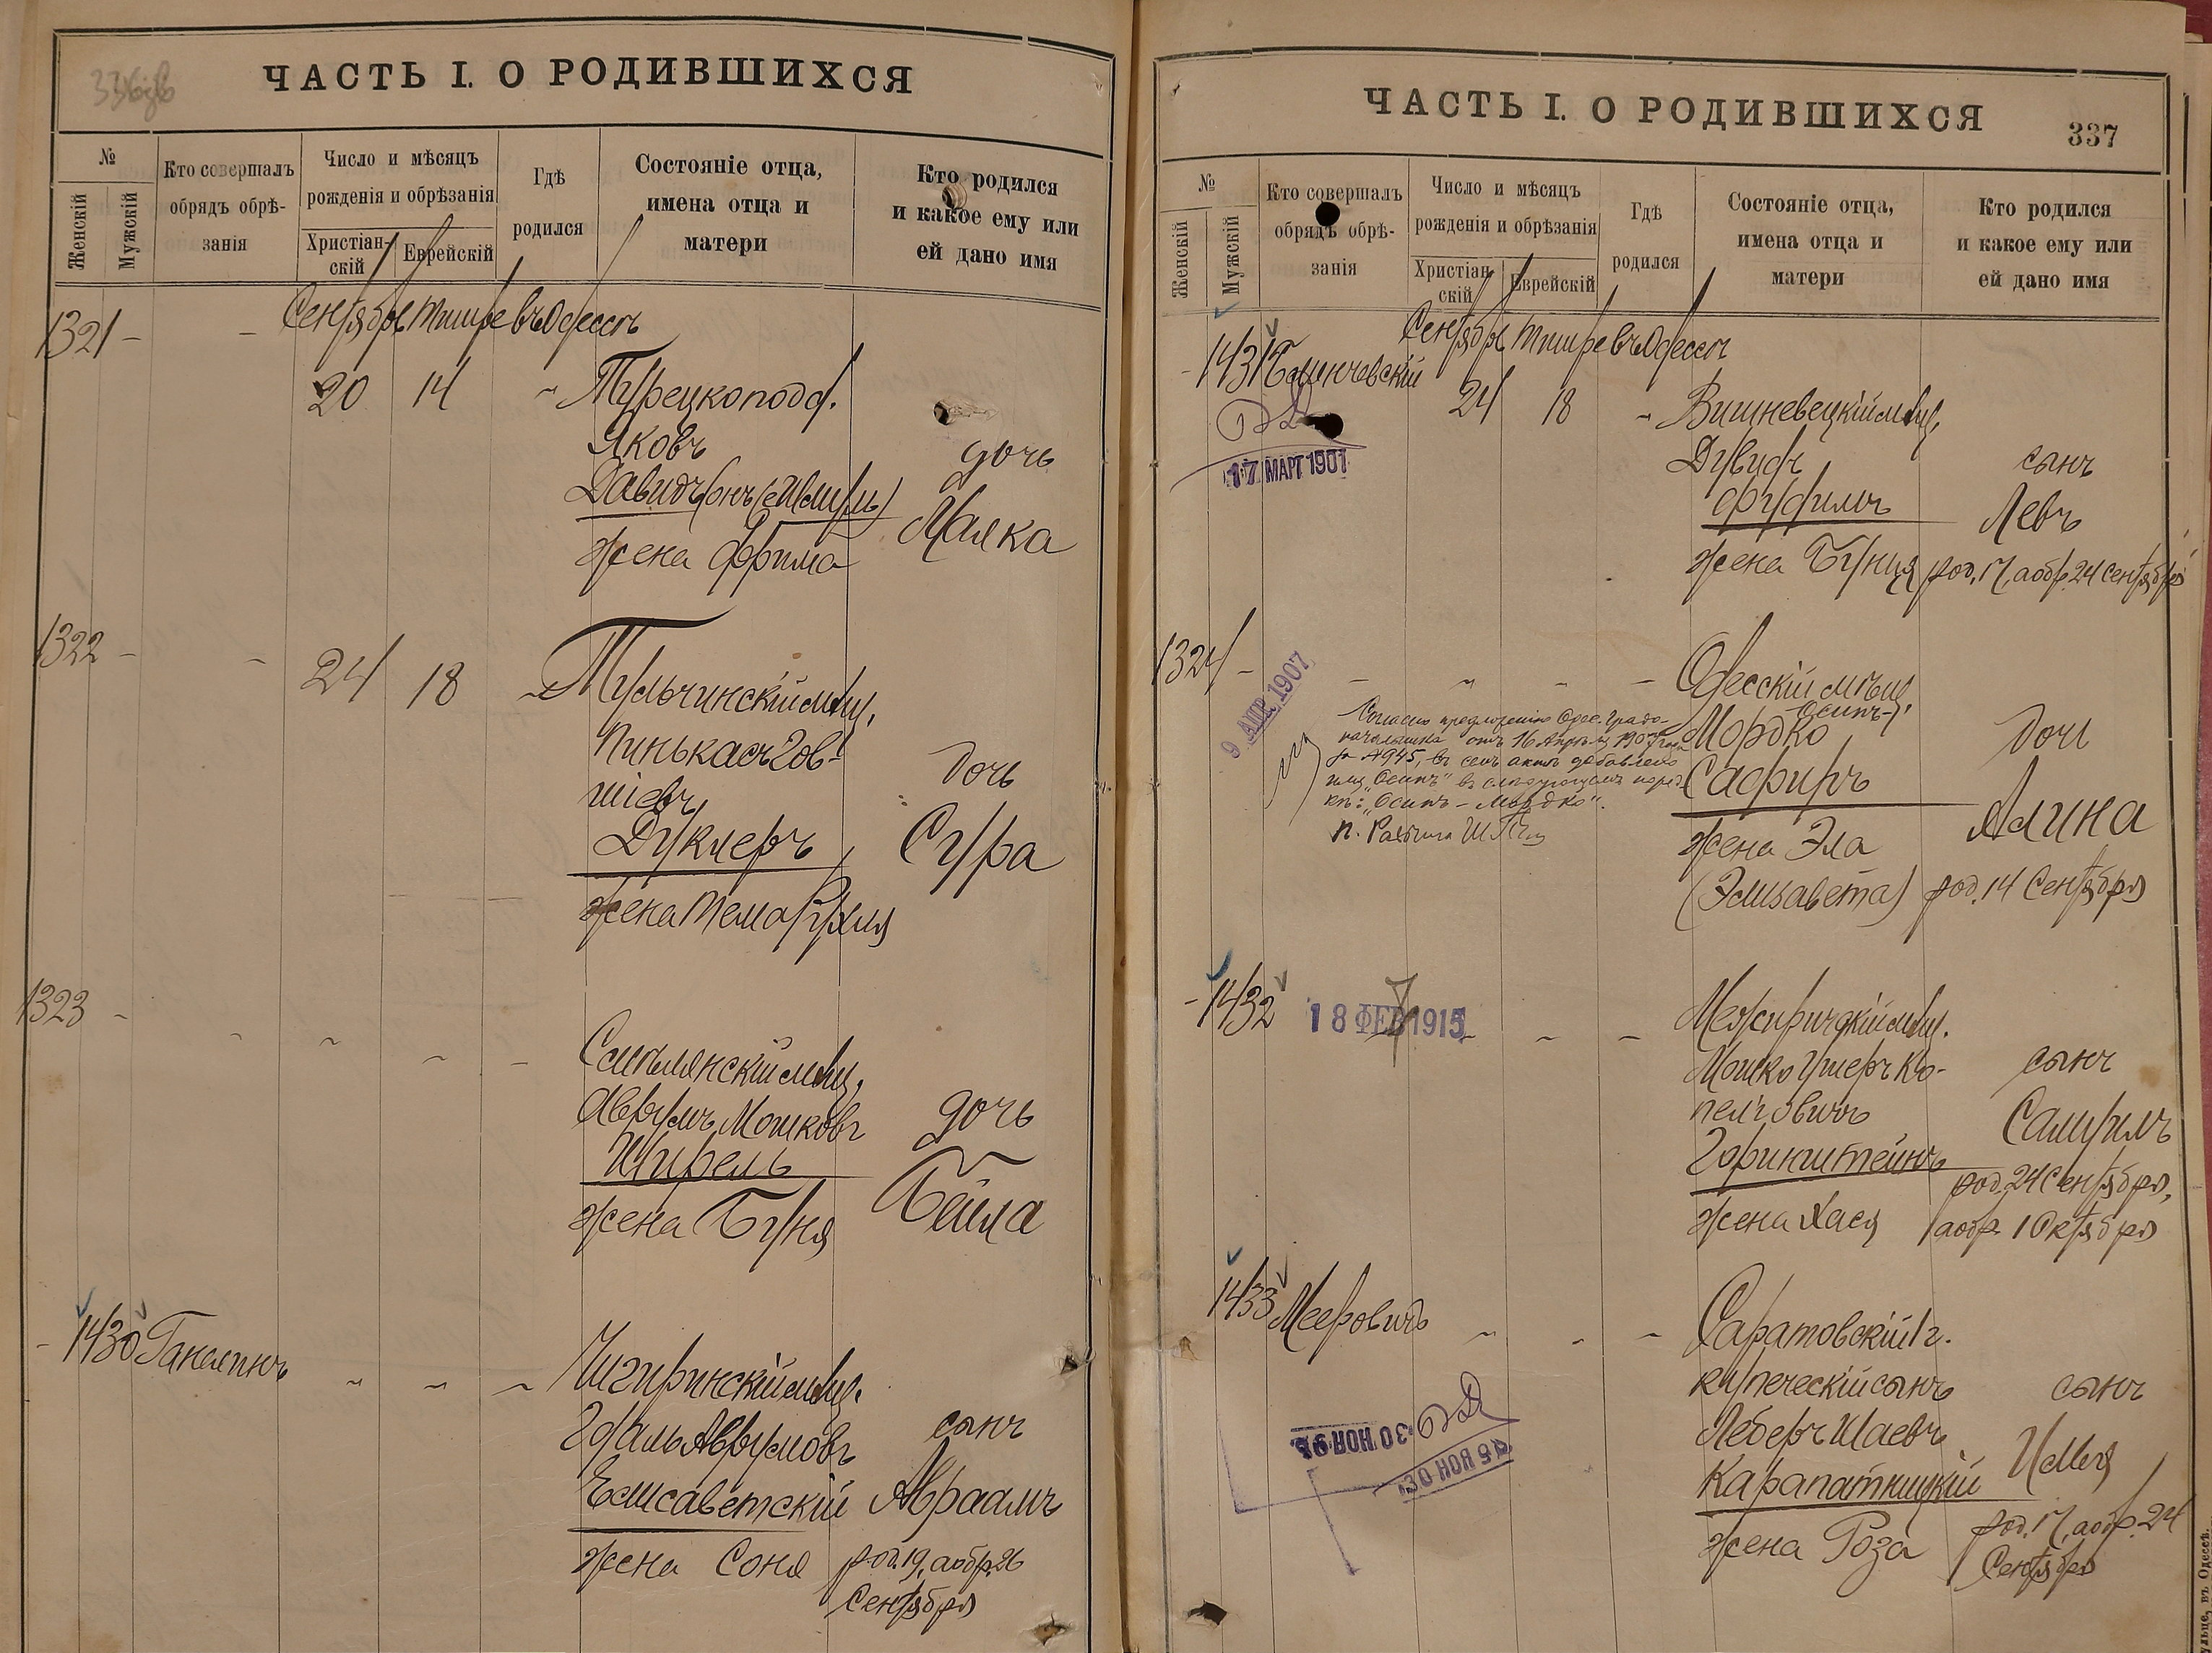 ЧАСТЬ I. О РОДИВШИХСЯ
№
Женскій
Мужскій
Кто совершалъ
обрядъ обрѣ-
занія
Число и мѣсяцъ
рожденія и обрѣзанія
Христіан-
скій
Еврейскій
Гдѣ
родился
Состояніе отца,
имена отца и
матери
Кто родился
и какое ему или
ей дано имя
Сентябрь Тишре въ Одессѣ
1321 - -
20 14 Турецкоподд.
Яковъ
Давидъ
жена Фрима
дочь
Малка
1322 - - 24 18 Тульчинскій мѣщ.
Пинькасъ Гов-
шіевъ
Дуклеръ
жена Тема Рухля
дочь
Сура
1323 -
мѣщ.
Аврумъ Мошковъ
Шпрель
жена Буня
дочь
Бейла
- 1430 Ганелинъ
Чигиринскій мѣщ.
Гдаль Аврумовъ
Елисаветскій
жена Соня
сынъ
Авраамъ
род. 19, а обр. 26
Сентября
ЧАСТЬ I. О РОДИВШИХСЯ
337
№
Женскій
Мужскій
Кто совершалъ
обрядъ обрѣ-
занія
Число и мѣсяцъ
рожденія и обрѣзанія
Христіан
скій
Еврейскій
Гдѣ
родился
Состояніе отца,
имена отца и
матери
Кто родился
и какое ему или
ей дано имя
Сентябрь Тишре въ Одессѣ
- 1431
24 18 Вишневецкій мѣщ.
17 МАРТ 1901
Дувидъ
Фудимъ
жена Буня
сынъ
Левъ
род. 17, а обр. 24 Сентября
1324 -
9 АПР. 1907
Одесскій мѣщ.
Осипъ-
Мордко
Сафиръ
жена Эла
(Элизавета)
дочь
Алина
род. 14 Сентября
Согласно предложенію Одес. Градо-
начальника отъ 16 Апрѣля 1907 года
за №945, въ семъ актѣ добавлено
имя "Осипъ" въ слѣдующемъ поряд-
кѣ: "Осипъ - Мордко".
- 1432
18 ФЕВ 1915
Межиричскій мѣщ.
Мошко Ушеръ Ко-
пелговичъ
Горинштейнъ
жена Хася
сынъ
Самуилъ
род. 24 Сентября,
а обр. 1 Октября
1433 Мееровичъ
30 НОЯ 95
30 НОЯ 95
Саратовскій 1 г.
купеческій сынъ
Леберъ Шаевъ
Карапатницкій
жена Роза
сынъ
Илья
род. 17, а обр. 24
Сентября